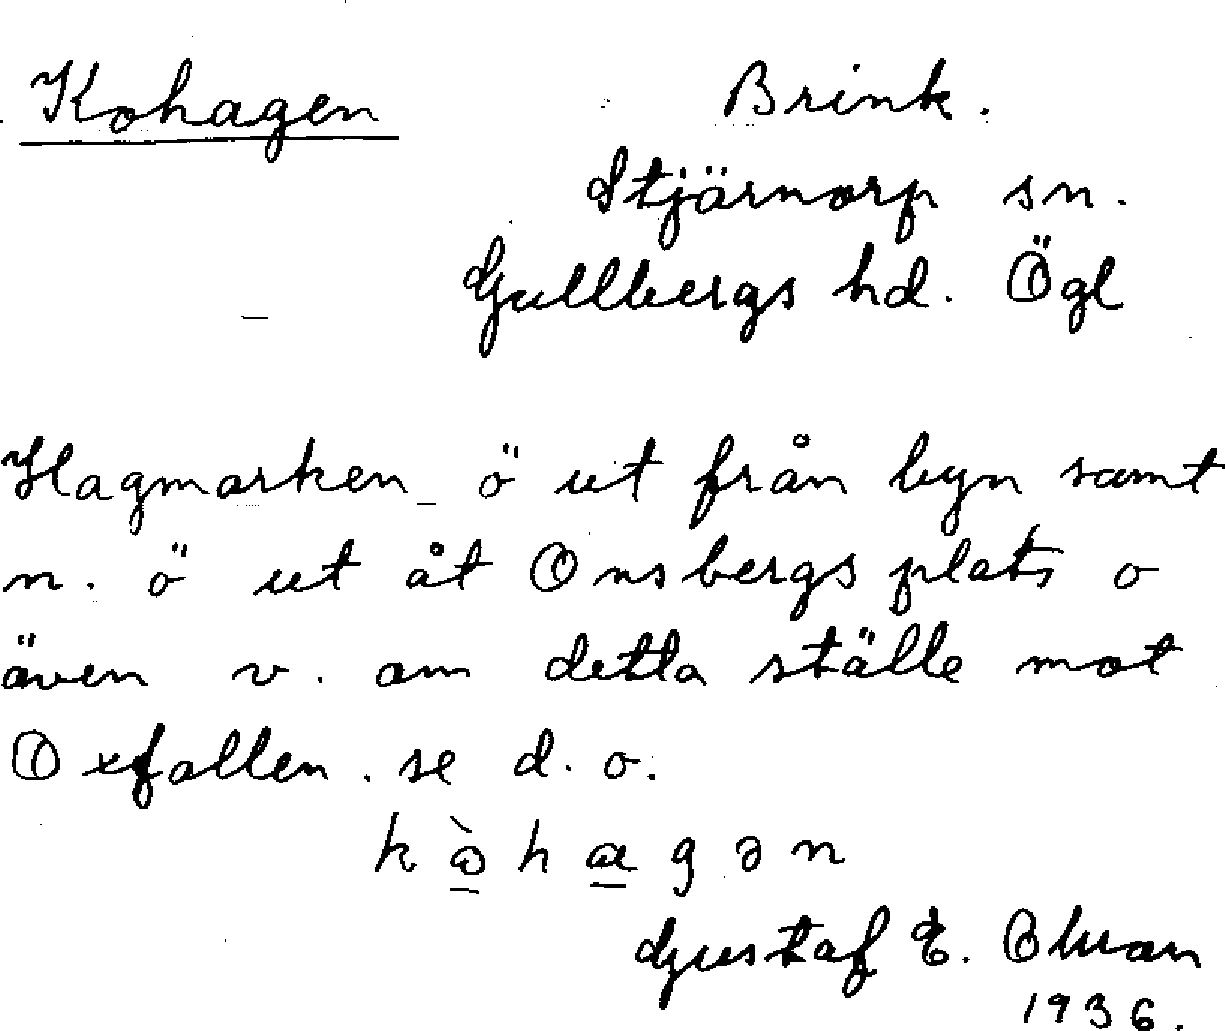 Kohagen Brink.
Stjärnorp sn.
Gullbergs hd. Ögl
Hagmarken ö ut från byn samt
n. ö ut åt Onsbergs plats o
även v. om detta ställe mot
Oxfallen. se d. o.
kὼhagən
Gustaf E. Olsson
1936.